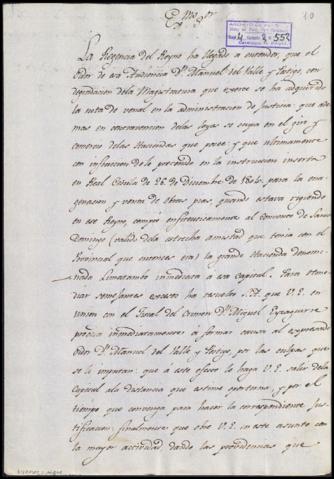 Exmo. Sr.
10
La Regencia del Reyno ha llegado a entender, que el
Oidor de esa Audiencia Dn. Manuel del Valle y Postigo, con
degradacion de la Magistratura que exerce se ha adquirido
la nota de venal en la administracion de Justicia: que ade
mas en contravencion de las leyes se ocupa en el giro y
comercio de las Haciendas que posee; y que ultimamente
con infraccion de lo prevenido en la instruccion inserta en
Real Cedula de 26 de Diciembre de 1804 para la ena
genacion y venta de obras pias, quando estava rigiendo
en ese Reyno, compró al Convento de Santo
Domingo (valido de la estrecha amistad que tenia con el
Provincial que entonces era) la grande Hacienda denomi
nada Limatambo inmediata a esa capital. Para reme
diar semejantes excesos ha resuelto S.A. que V.E. en
union con el Fiscal del Crimen Dn. Miguel Eyzaguirre
proceda inmediatamente á formar causa al expresado
Oidor Dn. Manuel del Valle y Postigo por las culpas que
se le imputan: que á este efecto le haga V.E. salir de la
Capital a la distancia que estime oportuna, y por el
tiempo que convenga para hacer la correspondiente Jus
tificacion: finalmente que obre V.E. en este asunto con
la mayor actividad, dando las providencias que